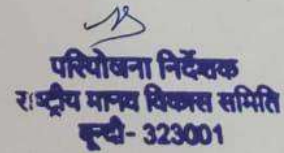 परियोजना निर्देशक
राष्ट्रीय मानव विकास समिति
बून्दी- 323001